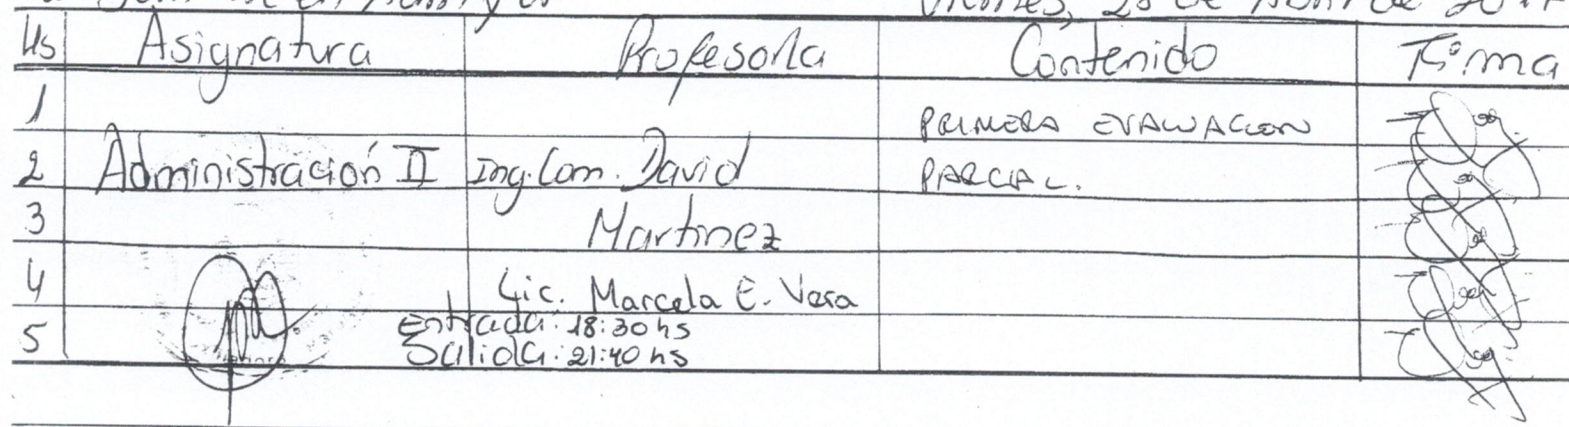 Hs Asignatura Profesor/a Contenido Firma
1 PRIMERA EVALUACION
2 Administración II Ing. Com. David PARCIAL.
3 Martinez
4 Lic. Marcela E. Vera
Entrada: 18:30 hs
5 Salida: 21:40 hs